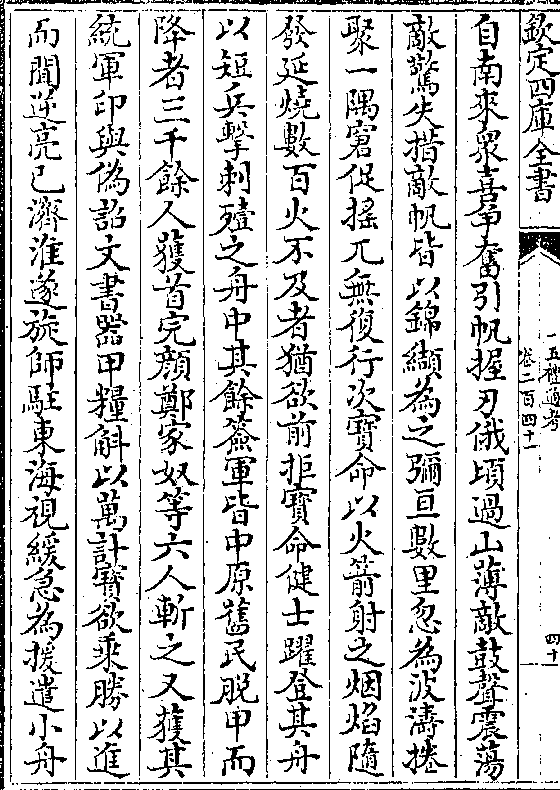 欽定四庫全書
五禮通考
卷二百四十一
四十
自南來衆喜爭奮引帆握刃俄頃過山薄敵鼓聲震蕩
敵驚失措敵帆皆以錦纈為之彌亘數里忽為波濤捲
聚一隅窘促搖兀無復行次寶命以火箭射之烟焰隨
發延燒數百火不及者猶欲前拒寶命健士躍登其舟
以短兵擊刺殪之舟中其餘簽軍皆中原舊民脱甲而
降者三千餘人獲首完顔鄭家奴等六人斬之又獲其
統軍印與偽詔文書器甲糧斛以萬計寶欲乘勝以進
而聞逆亮已濟淮遂旋師駐東海視緩急為援遣小舟